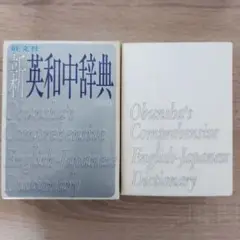 旺文社
新
英和中辞典
Obunsha's
Comprehensive
English-Japanese
Dictionary
Obunsha's
Comprehensive
English-Japanese
Dictionary